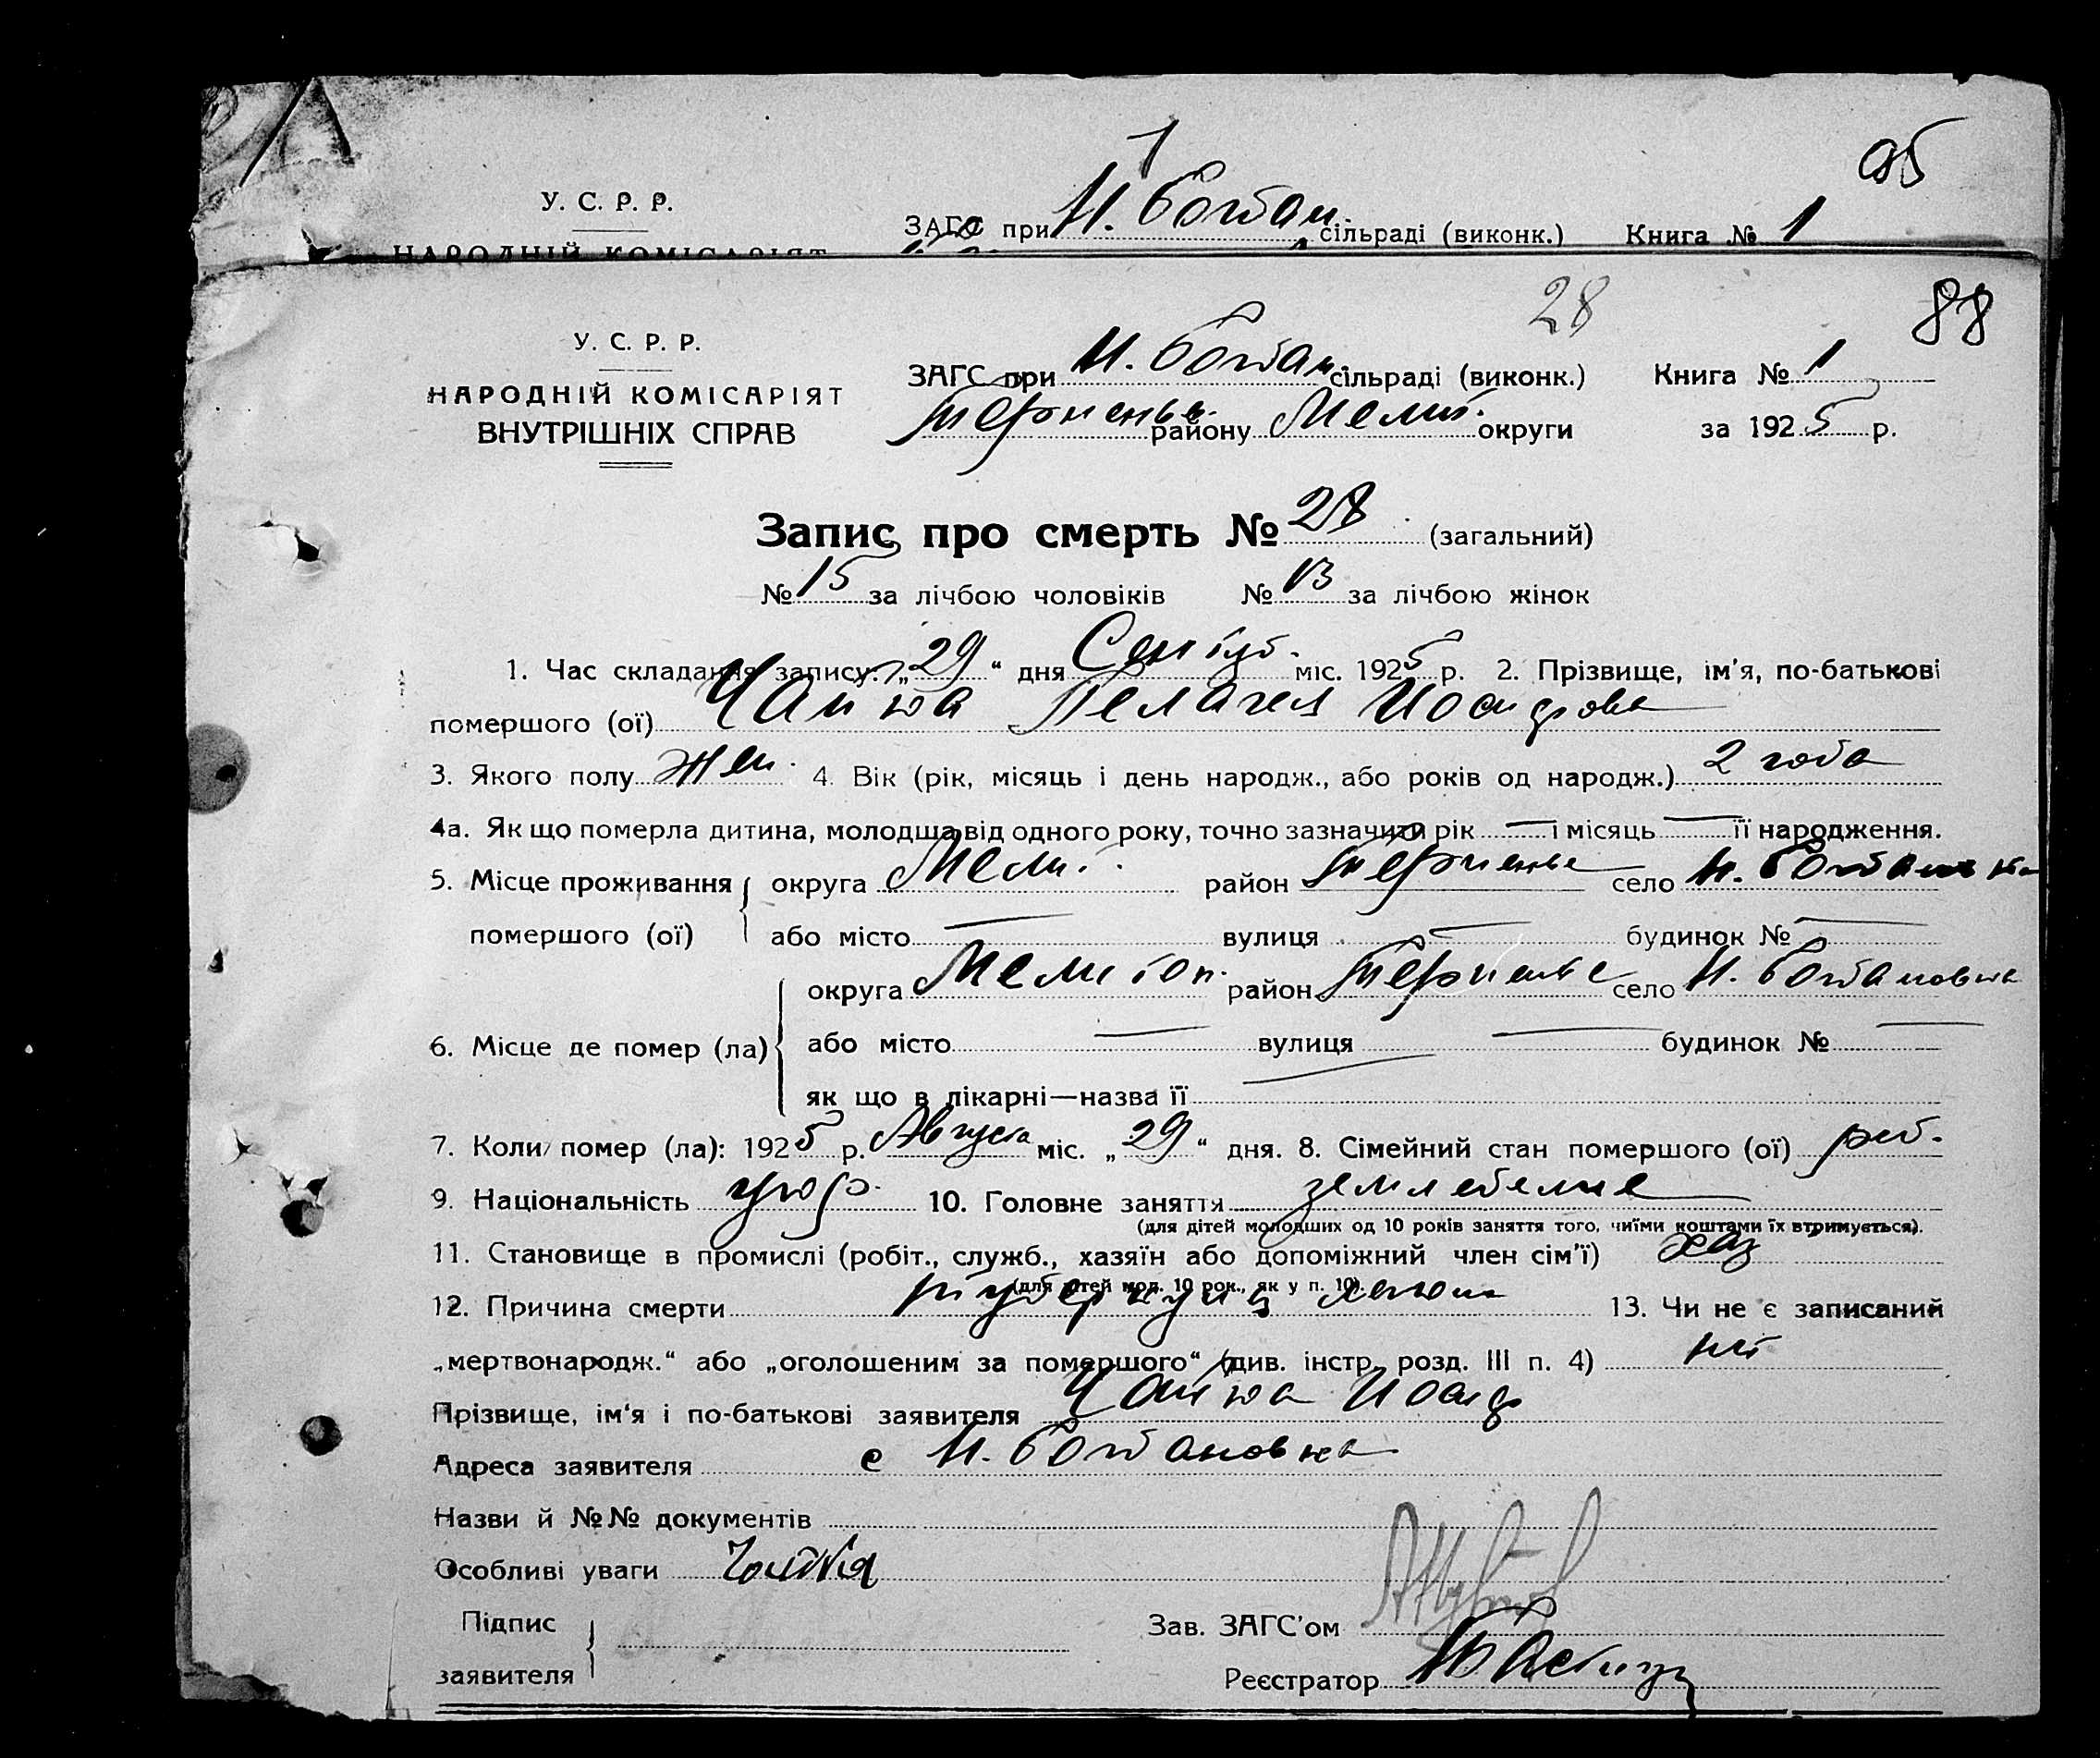 95
1
У. С. Р. Р.
ЗАГС при Н. Богдан. сільраді (виконк.) Книга № 1
НАРОДНІЙ КОМІСАРІЯТ
28
88
У. С. Р. Р.
ЗАГС при Н. Богдан. сільраді (виконк.) Книга № 1
НАРОДНІЙ КОМІСАРІЯТ
ВНУТРІШНІХ СПРАВ
Терпеньев. району Мелит. округи за 1925 р.
Запис про смерть № 28 (загальний)
№ 15 за лічбою чоловіків № 13 за лічбою жінок
1. Час складання запису: „29“ дня Сентяб. міс. 1925 р. 2. Прізвище, ім’я, по-батькові
помершого (ої) Чайка Пелагея Иосифова
3. Якого полу жен. 4. Вік (рік, місяць і день народж., або років од народж.) 2 года
4а. Як що померла дитина, молодша від одного року, точно зазначити рік — і місяць — її народження.
5. Місце проживання округа Мелит. район Терпенье село Н. Богдановка
помершого (ої) або місто — вулиця — будинок № —
округа Мелитоп. район Терпенье село Н. Богдановка
6. Місце де помер (ла) або місто — вулиця — будинок № —
як що в лікарні—назва її —
7. Коли помер (ла): 1925 р. Августа міс. „29“ дня. 8. Сімейний стан помершого (ої) реб.
9. Національність укр. 10. Головне заняття земледелие
(для дітей молодших од 10 років заняття того, чиїми коштами їх втримується).
11. Становище в промислі (робіт., служб., хазяїн або допоміжний член сім’ї) хаз
(для дітей мол. 10 рок., як у п. 10)
12. Причина смерти туберкулез легких 13. Чи не є записаний
„мертвонародж.“ або „оголошеним за помершого“ (див. інстр. розд. III п. 4) нет
Прізвище, ім’я і по-батькові заявителя Чайка Иосиф
Адреса заявителя с Н. Богдановка
Назви й №№ документів
Особливі уваги
Підпис
заявителя
Зав. ЗАГС’ом
Реєстратор